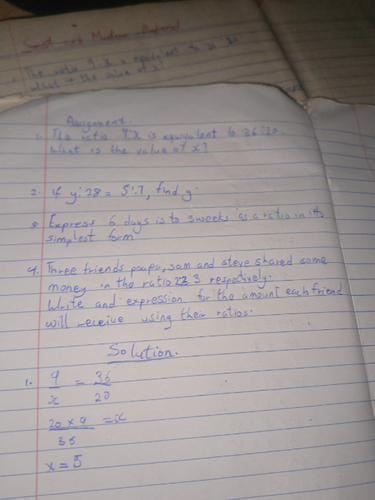 The ratio 9:x is equivalent to 36:20
what is the value of x?
Assignment.
1. The ratio 9:x is equivalent to 36:20.
What is the value of x?
2. if y:28 = 5:7, find y.
3. Express 6 days is to 3 weeks as a ratio in its
simplest form
4. Three friends sam and steve shared some
money in the ratio 2:3 respectively.
Write and expression for the amount each friend
will receive using their ratios.
Solution.
1. 9/x = 36/20
20 x 9 / 36 = x
x = 5